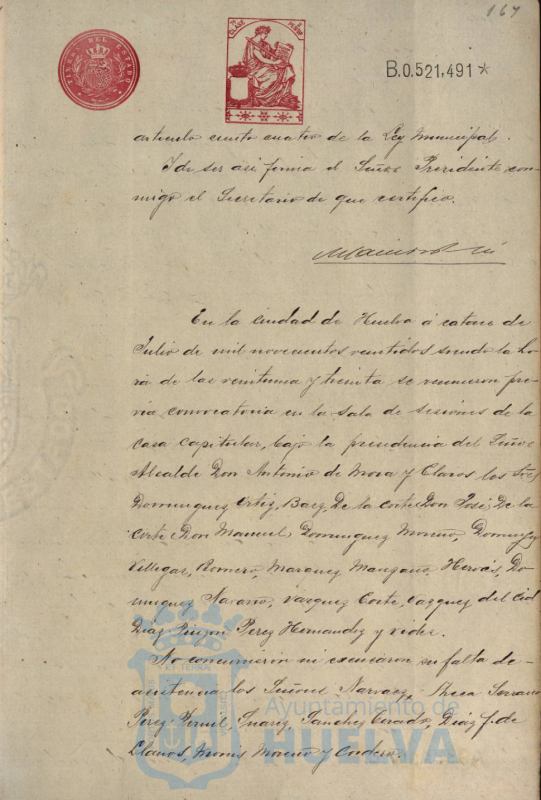 167
TIMBRE DEL ESTADO
CLASE
B.0.521,491*
artículo ciento cuatro de la Ley Municipal.
Y de ser así firma el Señor Presidente con-
migo el Secretario de que certifico.
En la ciudad de Huelva á catorce de
Julio de mil novecientos veintidos siendo la ho
ra de las veintiuna y treinta se reunieron pre
via convocatoria en la Sala de sesiones de la
Casa Capitular, bajo la presidencia del Señor
Alcalde Don Antonio de Mora y Claros los Sres
Dominguez Ortiz, Baez, De la Corte Don José, De la
Corte Don Manuel, Dominguez Moreno, Dominguez
Villegas, Romero, Marquez Manzano, Do-
minguez Navarro, Vazquez Corte, Vazquez del Cid
Diaz Pinzon Perez Hernandez y Vides.
No concurrieron ni excusaron su falta de
asistencia los Señores Narvaez, Checa Serrano
Perez Suarez, Sanchez Diaz f. de
Llanos, Monis Moreno y Cordero.
Ayuntamiento de
HUELVA